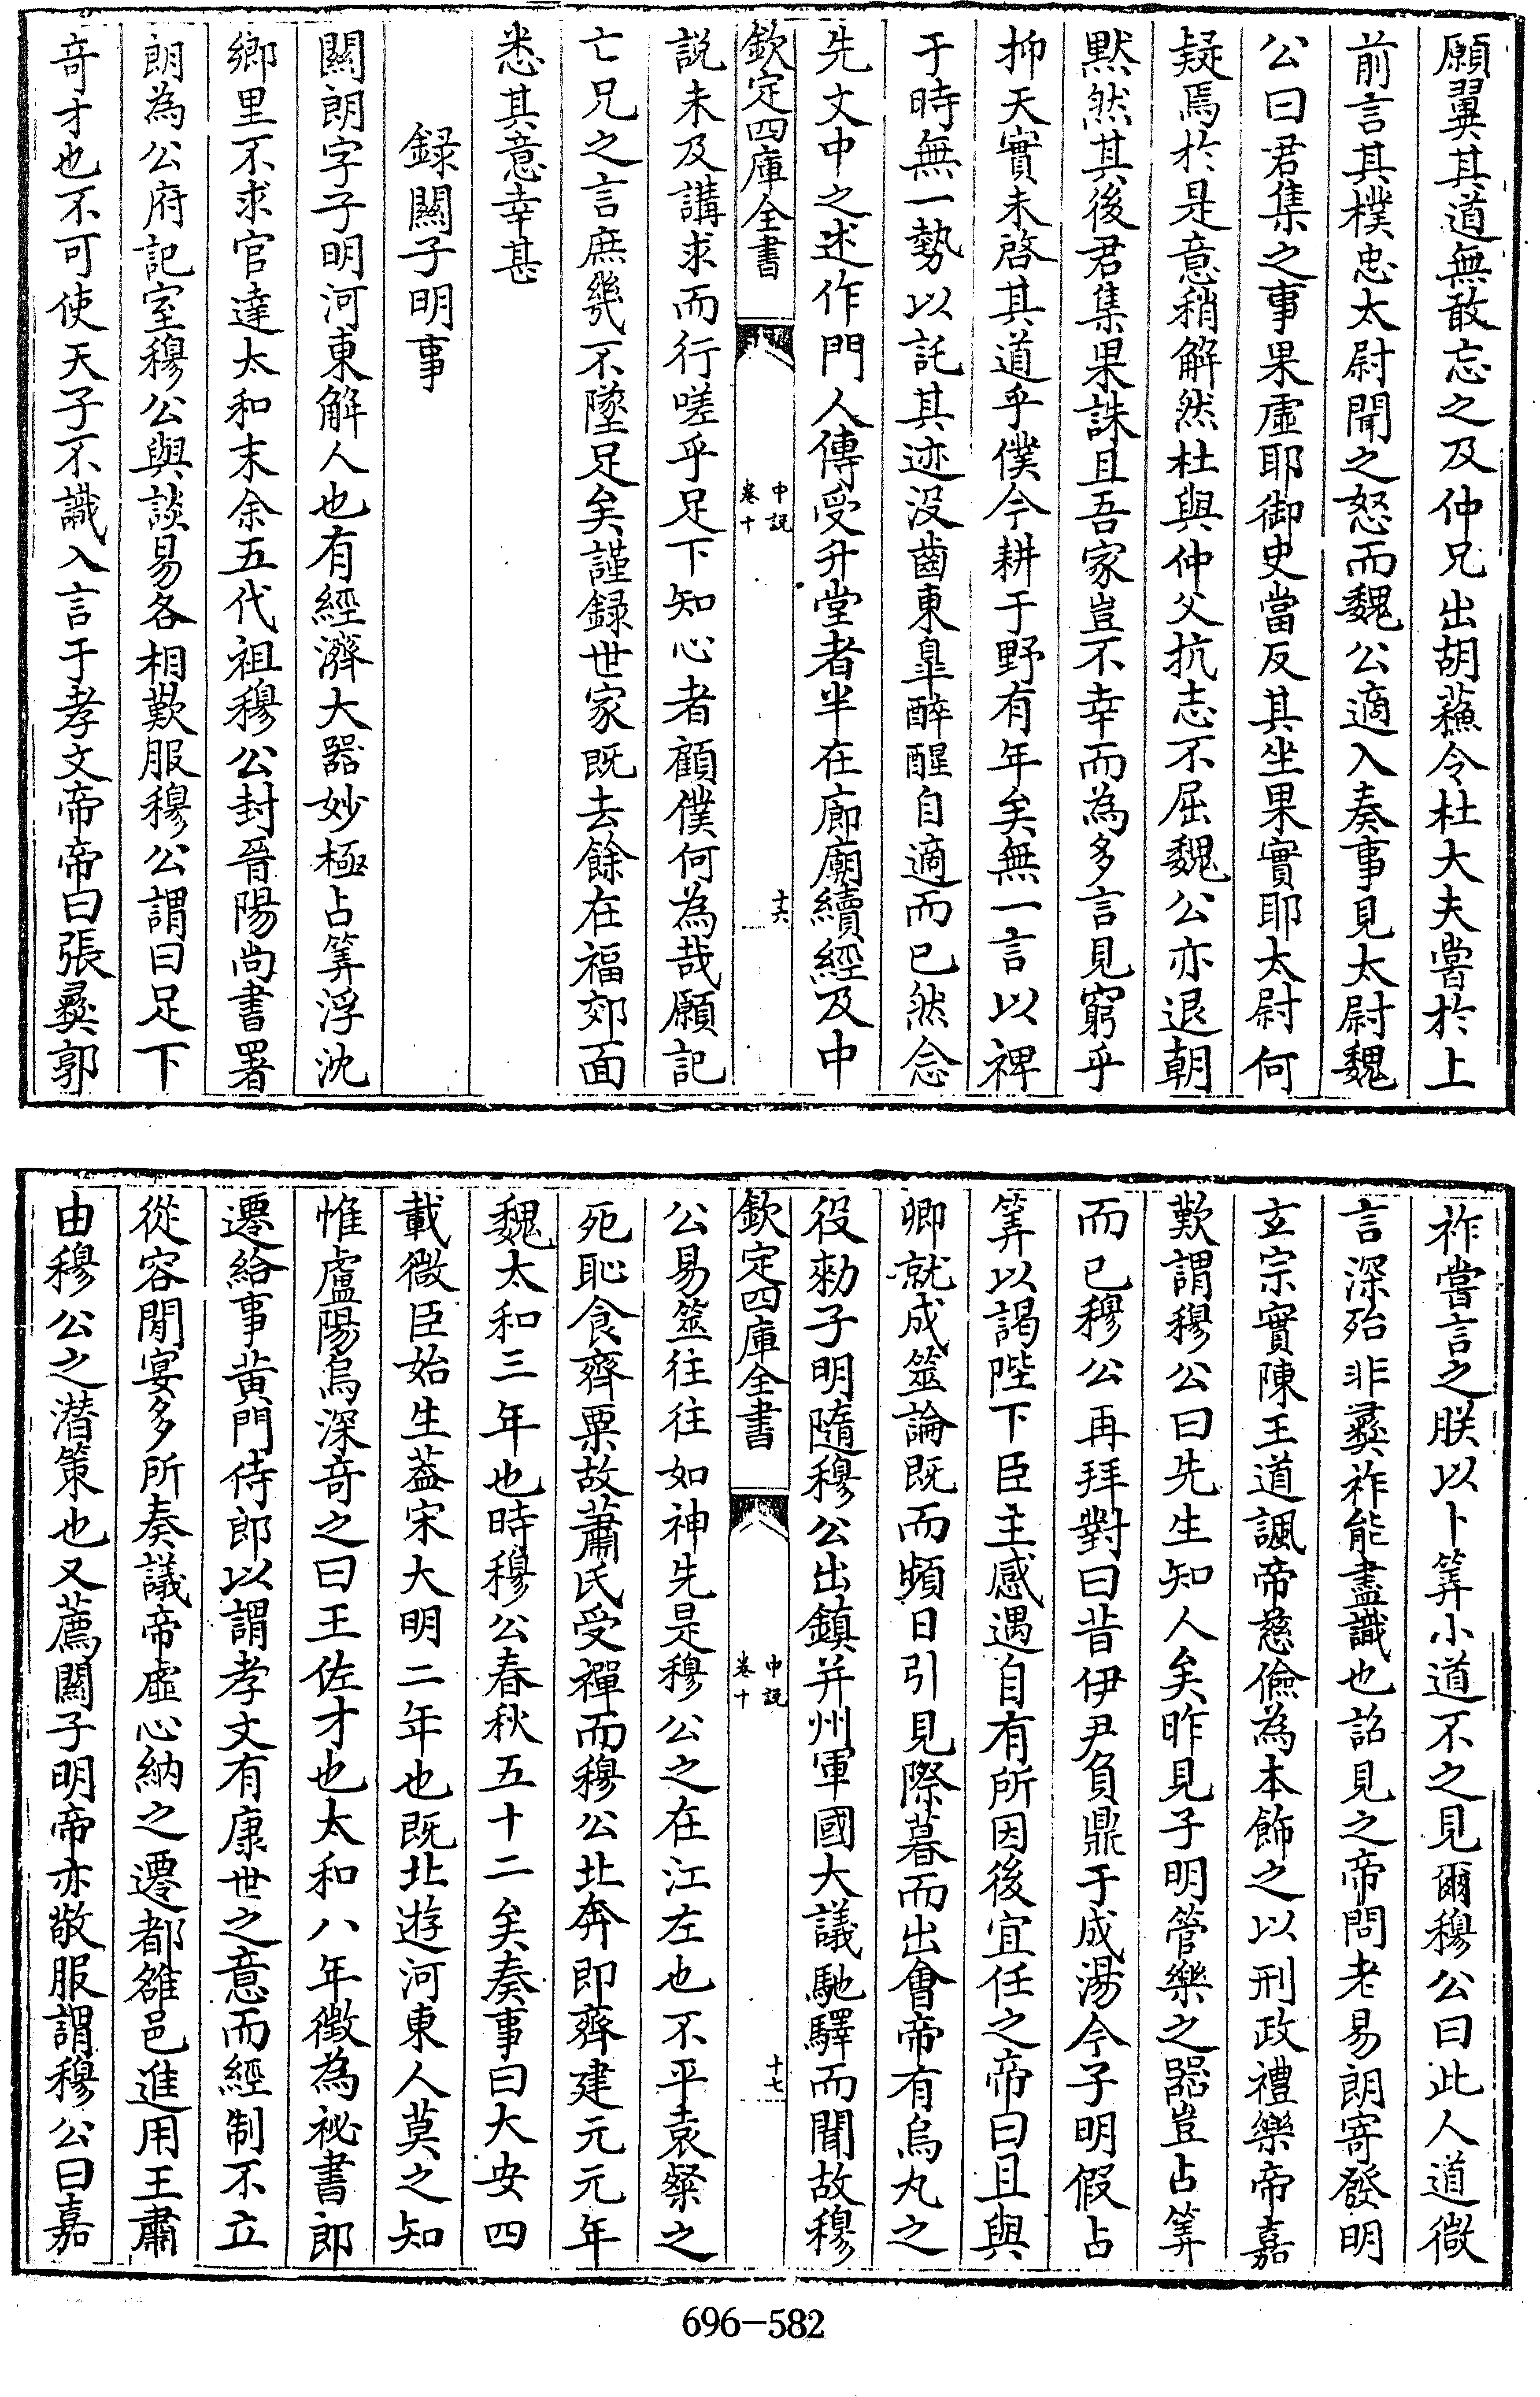 願翼其道無敢忘之及仲兄出胡蘇令杜大夫嘗於上
前言其樸忠太尉聞之怒而魏公適入奏事見太尉魏
公曰君集之事果虛耶御史當反其坐果實耶太尉何
疑焉於是意稍解然杜與仲父抗志不屈魏公亦退朝
黙然其後君集果誅且吾家豈不幸而為多言見窮乎
抑天實未啓其道乎僕今耕于野有年矣無一言以禆
于時無一勢以託其迹没齒東臯醉醒自適而已然念
先文中之述作門人傳受升堂者半在廊廟續經及中
欽定四庫全書
中説
卷十
十六
説未及講求而行嗟乎足下知心者顧僕何為哉願記
亡兄之言庶㡬不墜足矣謹録世家既去餘在福郊面
悉其意幸甚
録關子明事
關朗字子明河東解人也有經濟大器妙極占筭浮沈
鄉里不求官達太和末余五代祖穆公封晉陽尚書署
朗為公府記室穆公與談易各相歎服穆公謂曰足下
奇才也不可使天子不識入言于孝文帝帝曰張彞郭
祚嘗言之朕以卜筭小道不之見爾穆公曰此人道微
言深殆非彞祚能盡識也詔見之帝問老易朗寄發明
玄宗實陳王道諷帝慈儉為本飾之以刑政禮樂帝嘉
歎謂穆公曰先生知人矣昨見子明管樂之器豈占筭
而已穆公再拜對曰昔伊尹負鼎于成湯今子明假占
筭以謁陛下臣主感遇自有所因後宜任之帝曰且與
卿就成筮論既而頻日引見際暮而出會帝有烏丸之
役勑子明隨穆公出鎮并州軍國大議馳驛而聞故穆
欽定四庫全書
中説
卷十
十七
公易筮往往如神先是穆公之在江左也不平袁粲之
死恥食齊粟故蕭氏受禪而穆公北奔即齊建元元年
魏太和三年也時穆公春秋五十二矣奏事曰大安四
載微臣始生葢宋大明二年也既北遊河東人莫之知
惟盧陽烏深奇之曰王佐才也太和八年徵為祕書郎
遷給事黄門侍郎以謂孝文有康世之意而經制不立
從容閒宴多所奏議帝虛心納之遷都雒邑進用王肅
由穆公之潛策也又薦關子明帝亦敬服謂穆公曰嘉
696-582